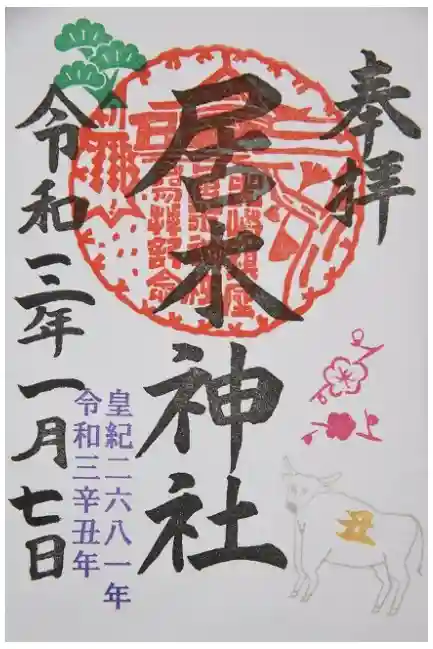 奉拝
居木神社
令和三年一月七日
皇紀二六八一年
令和三辛丑年
丑